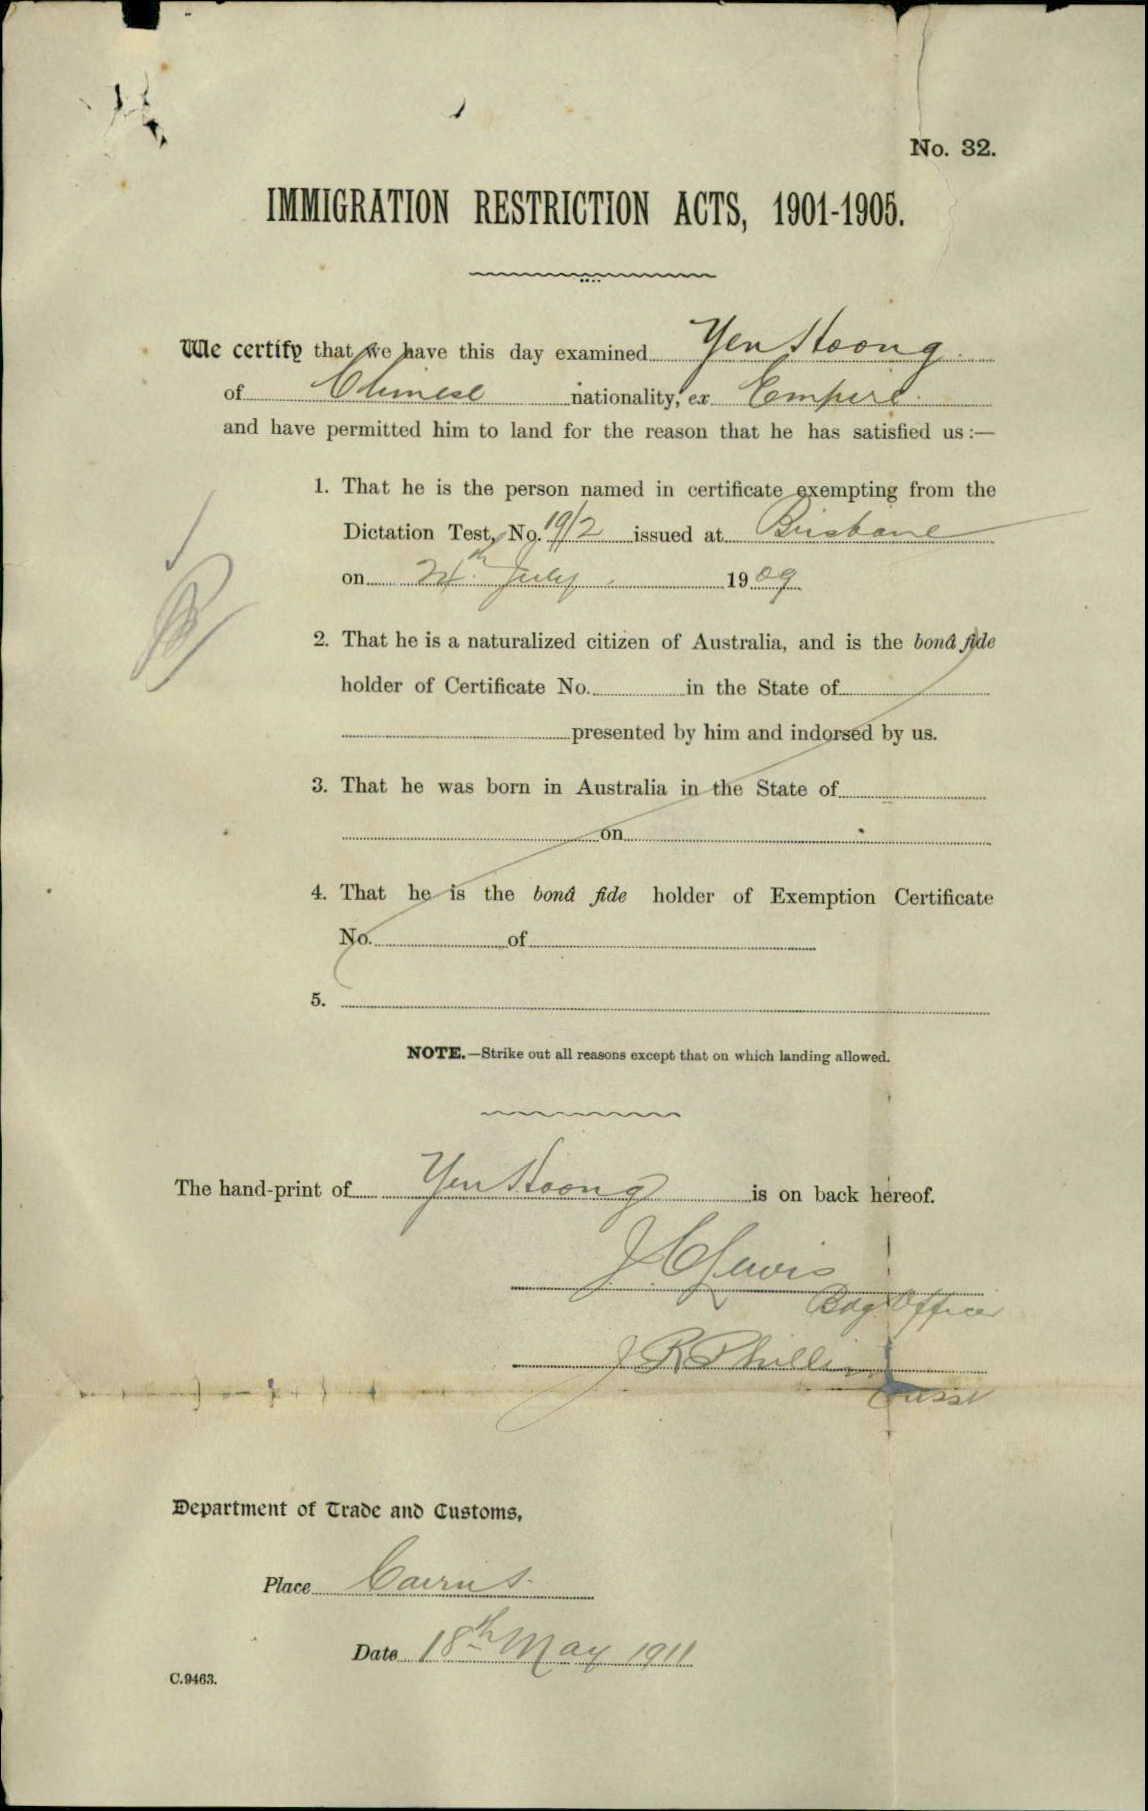 No. 32.
IMMIGRATION RESTRICTION ACTS, 1901-1905.
We certify that we have this day examined Yen Hoong
of Chinese nationality, ex Empire.
and have permitted him to land for the reason that he has satisfied us:—
1. That he is the person named in certificate exempting from the
Dictation Test, No. 19/2 issued at Brisbane
on 24th July 1909
2. That he is a naturalized citizen of Australia, and is the bonâ fide
holder of Certificate No. in the State of
presented by him and indorsed by us.
3. That he was born in Australia in the State of
on
4. That he is the bonâ fide holder of Exemption Certificate
No. of
5.
NOTE.—Strike out all reasons except that on which landing allowed.
The hand-print of Yen Hoong is on back hereof.
J. C. Lewis
Bdg Officer
J R Phillips
Department of Trade and Customs,
Place Cairns.
Date 18th May 1911
C.9463.